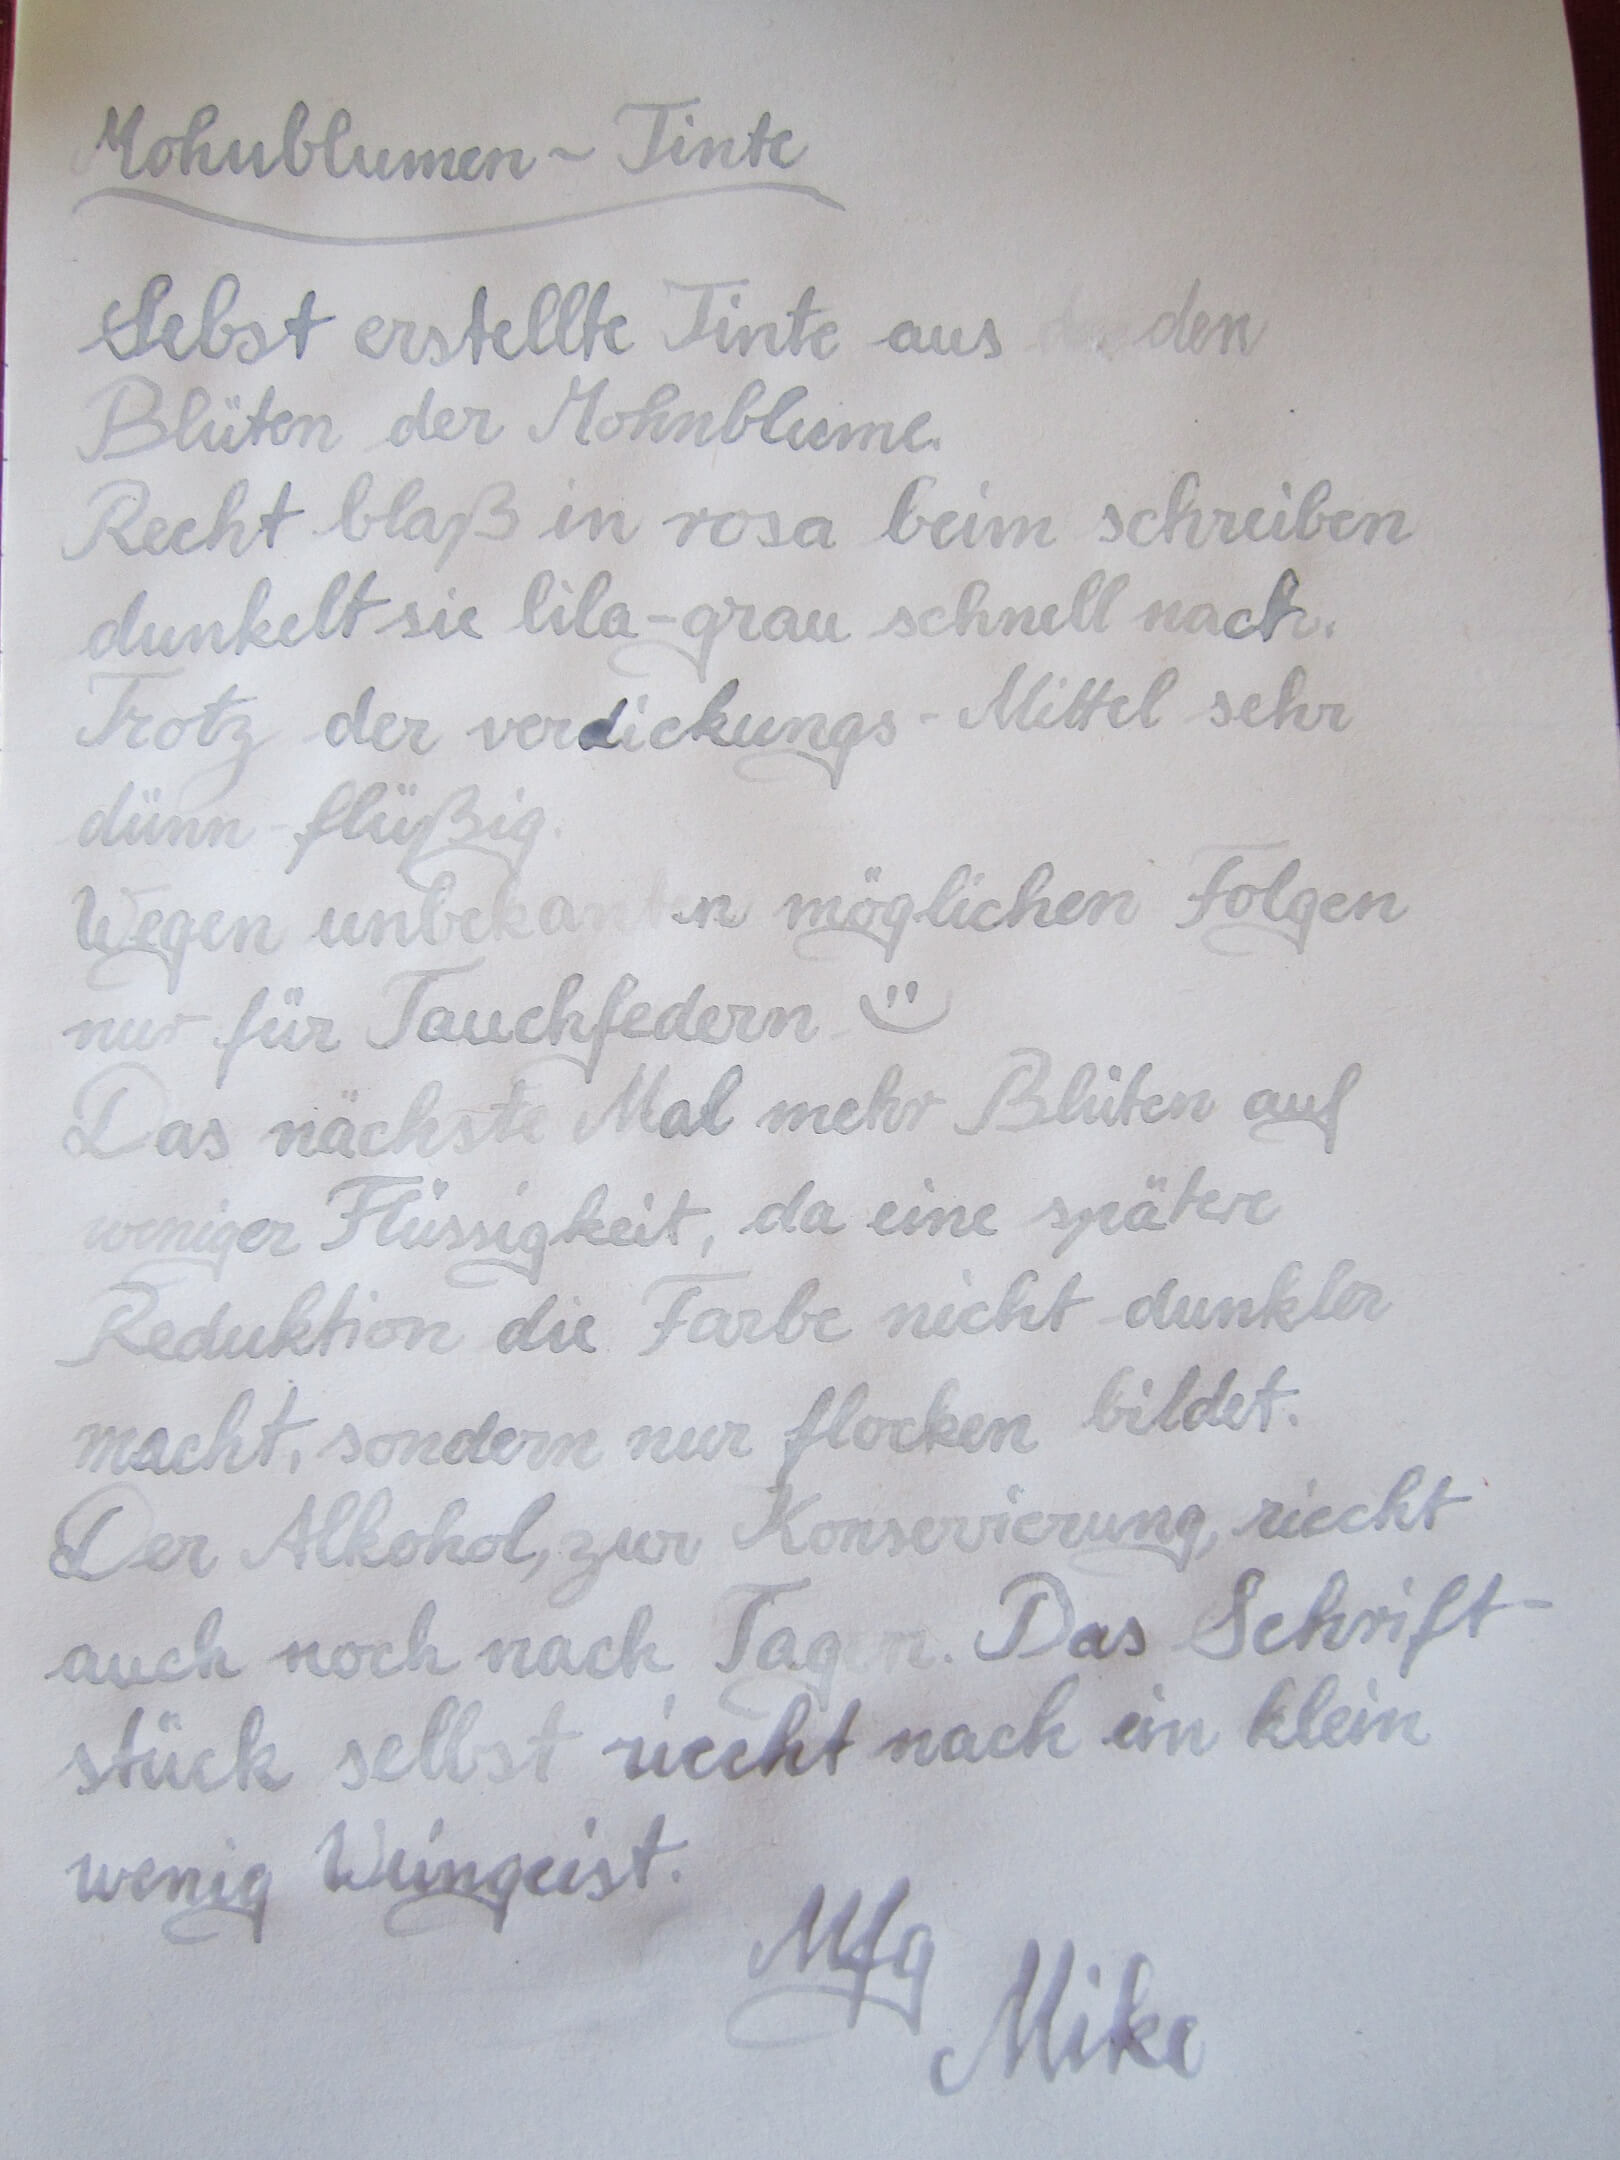 Mohnblumen ~ Tinte
Sebst erstellte Tinte aus den
Blüten der Mohnblume.
Recht blaß in rosa beim schreiben
dunkelt sie lila-grau schnell nach.
Trotz der verdickungs-Mittel sehr
dünn-flüßig.
Wegen unbekannten möglichen Folgen
nur für Tauchfedern
Das nächste Mal mehr Blüten auf
weniger Flüssigkeit, da eine spätere
Reduktion die Farbe nicht dunkler
macht, sondern nur flocken bildet.
Der Alkohol, zur Konservierung, riecht
auch noch nach Tagen. Das Schrift-
stück selbst riecht nach ein klein
wenig Weingeist.
Mfg
Mike